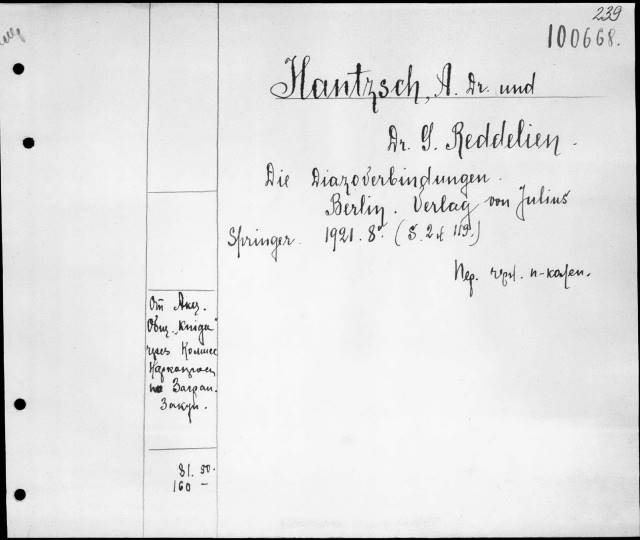 239
100668.
Hantzsch, A. Dr. und
Dr. G. Reddelien.
Die Diazoverbindungen.
Berlin. Verlag von Julius
Springer. 1921. 8°. (S. 2 113.)
Пер.
От Акц.
Общ. „Kniga"
через Комисс
по Загран.
Закуп.
81. 50.
160 –